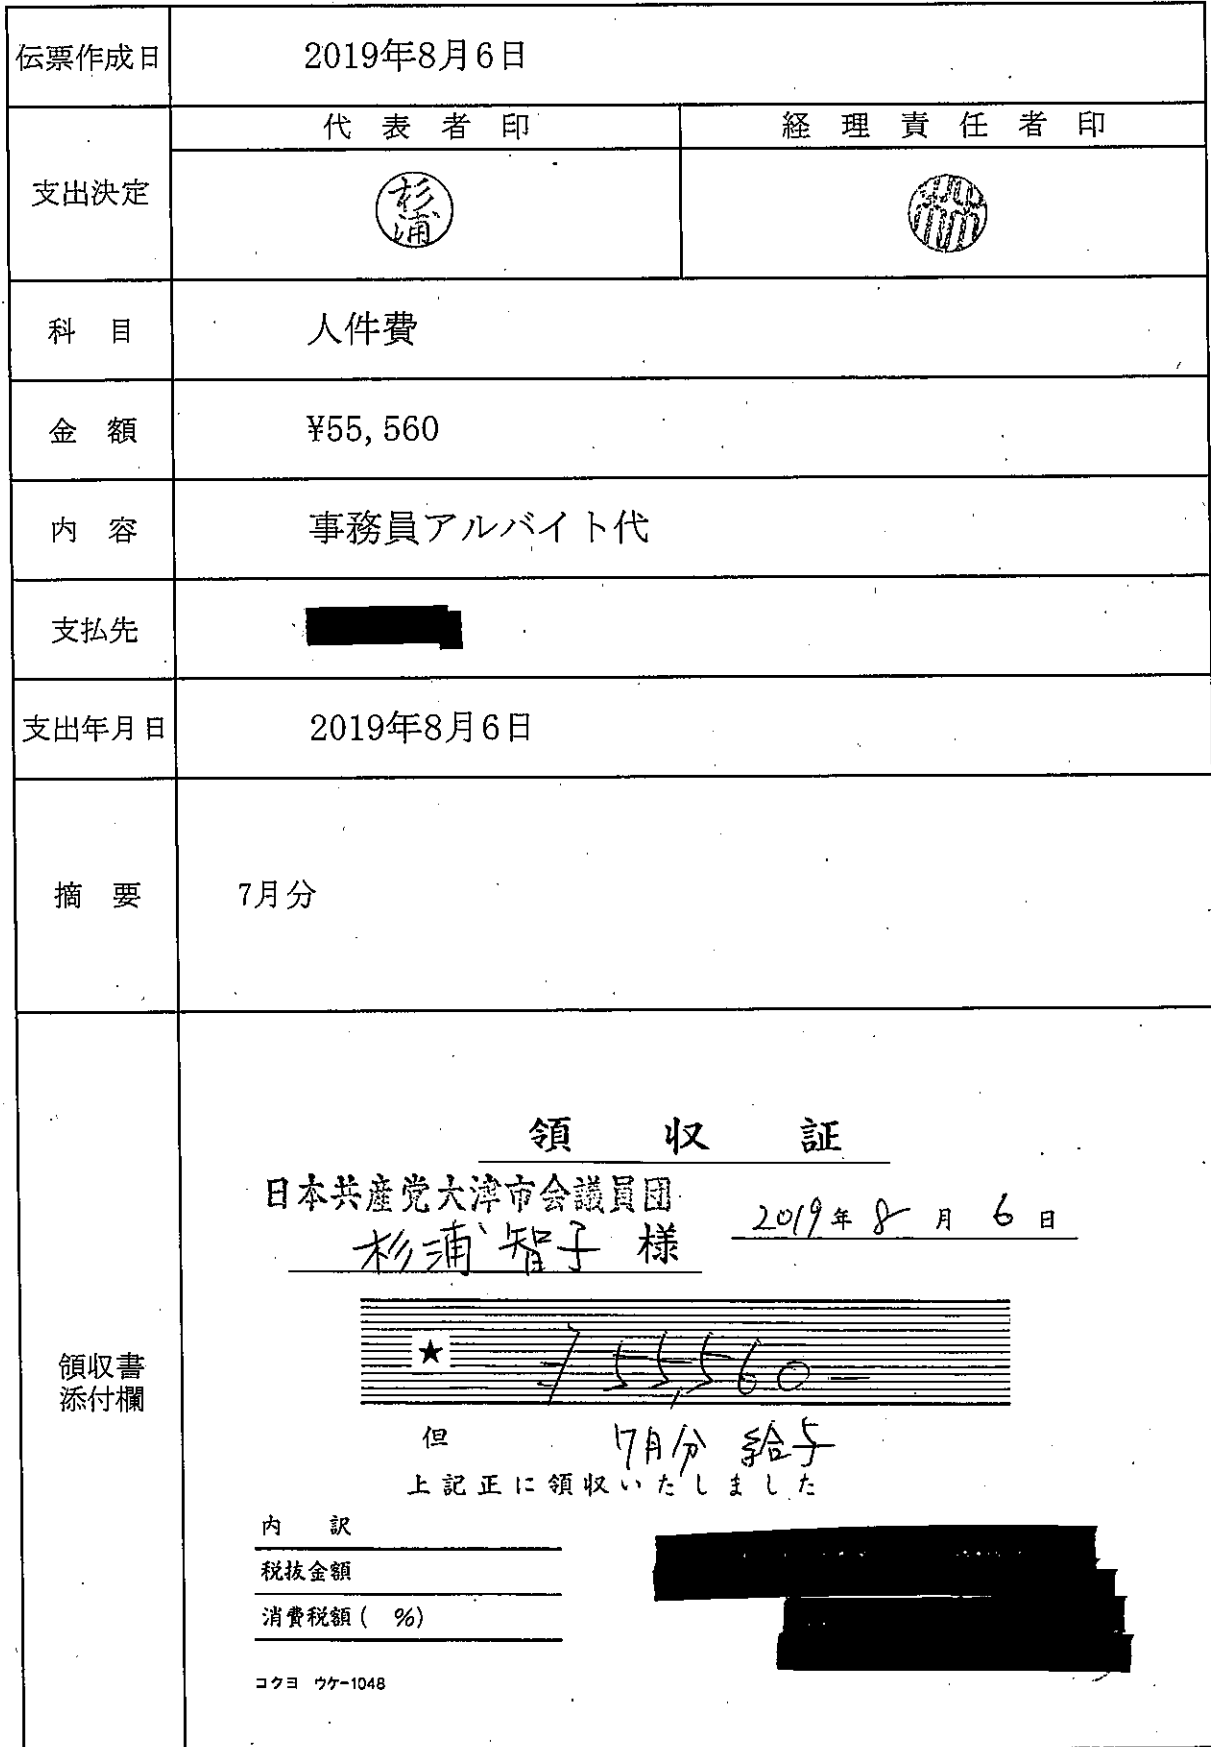 伝票作成日 2019年8月6日
支出決定 代表者印 経理責任者印
杉浦
科目 人件費
金額 ¥55,560
内容 事務員アルバイト代
支払先
支出年月日 2019年8月6日
摘要 7月分
領収書
添付欄
領収証
日本共産党大津市会議員団
杉浦智子様
2019年8月6日
★ ¥55,560-
但 7月分 給与
上記正に領収いたしました
内訳
税抜金額
消費税額( %)
コクヨ ウケ-1048